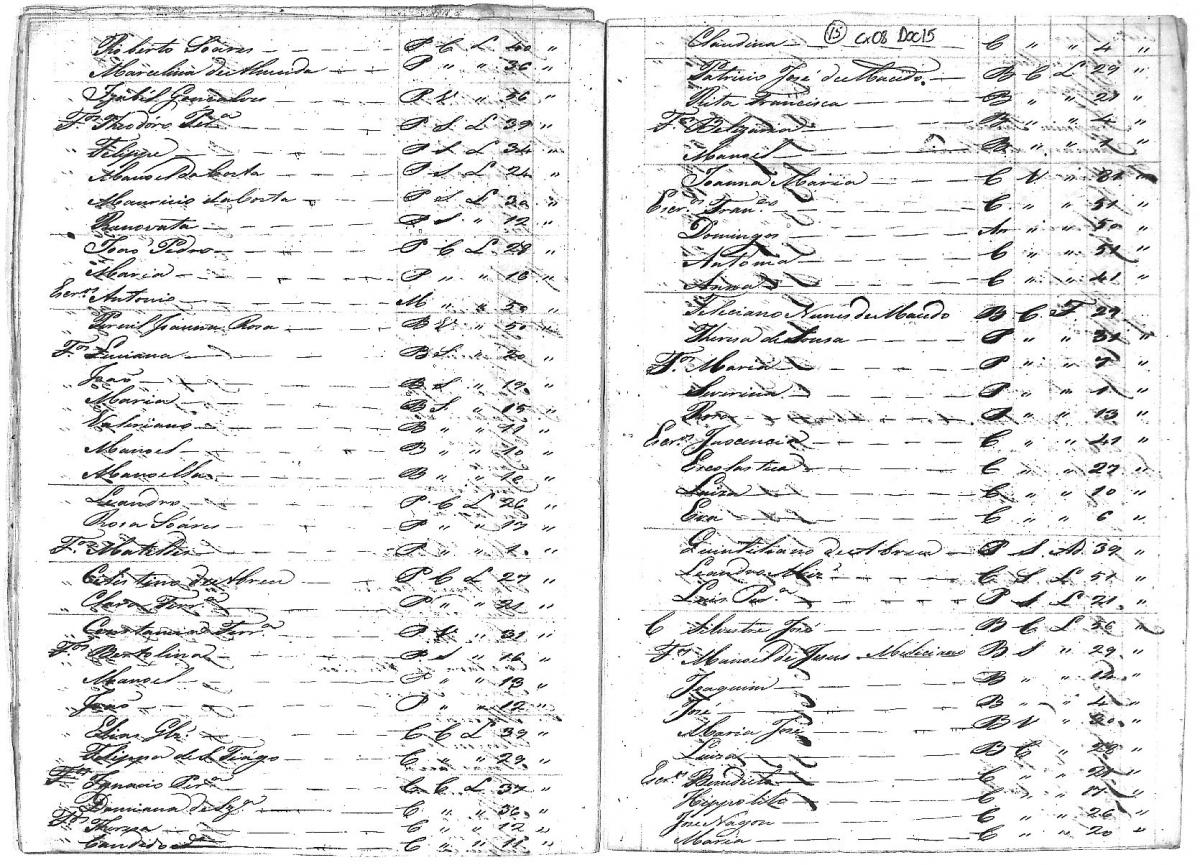 Roberto Soares P C L 40 "
Marcelina de Almeida P " " 36 "
Izabel Gonçalves P V " 46 "
F.os Theodoro Per.a P S L 39 "
" Felippe P S L 34 "
Manoel da Costa P S L 24 "
Mauricio da Costa P S L 30 "
Renovata P S " 12 "
João Pedro P C L 28 "
Maria P " " 18 "
Escr.os Antonio M " " 50 "
Joanna Rosa B V " 50 "
F.os Luciana B S " 20 "
João B S " 19 "
Maria B S " 15 "
Valeriano B " " 11 "
Manoel B " " 10 "
Manoella B " " 10 "
Leandro P C L 26 "
Rosa Soares P " " 17 "
F.os Matildes P " " 1 "
Celestino de Abreu P C L 27 "
Clara P " " 21 "
Constancia P V " 31 "
F.os Bertolina P S " 16 "
Manoel P " " 13 "
João P " " 12 "
Elias C C L 39 "
Felippa de S. Tiago C " " 29 "
Ignacio Per.a C C L 37 "
Damiana de C " " 36 "
F.os Thereza C " " 12 "
Candido C " " 11 "
15 Cx08 Doc15
Claudina C " " 4 "
Patricio José de Macedo B C L 29 "
Rita Francisca B " " 21 "
F.os B " " 4 "
Manoel B " " 1 "
Joanna Maria C V " 81 "
Escr.os Fran.co C " " 51 "
Domingos An " " 50 "
Antonia C " " 51 "
Anna C " " 41 "
Feliciano Nunes de Macedo B C F 29 "
Thereza de Sousa P " " 31 "
F.os Maria P " " 7 "
Severina P " " 1 "
Rosa P " " 13 "
Escr.os C " " 41 "
Escolastica C " " 27 "
Luiza C " " 10 "
Eva C " " 6 "
Quintiliano de Abreu P S N 39 "
Leandro C S L 51 "
Luis P S L 21 "
C Silvestre José B C L 26
F.os Manoel de Jesus Miliciano B S " 29 "
Joaquim B " " 12 "
José B " " 4 "
Maria José B V " 20 "
Luiza B C " 28 "
Escr.os Benedicta C " " 21 "
Hippolito C " " 17 "
José Nagou C " " 26 "
Maria C " " 20 "